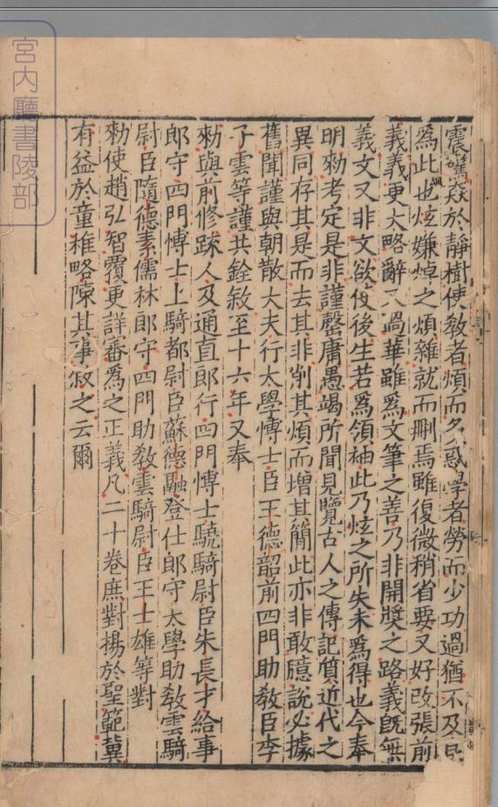 震驚焱於靜樹使教者煩而多惑學者勞而少功過猶不及良
為此也炫嫌焯之煩雜就而刪焉雖復微稍省要又好改張前
義義更太略辭又過華雖為文筆之善乃非開獎之路義既無
義文又非文欲使後生若為領袖此乃炫之所失未為得也今奉
明勑考定是非謹罄庸愚竭所聞見覽古人之傳記質近代之
異同存其是而去其非削其煩而增其簡此亦非敢臆說必據
舊聞謹與朝散大夫行太學博士臣王德韶前四門助教臣李
子雲等謹共銓敘至十六年又奉
勑與前修疏人及通直郎行四門博士驍騎尉臣朱長才給事
郎守四門博士上騎都尉臣蘇德融登仕郎守太學助教雲騎
尉臣隨德素儒林郎守四門助教雲騎尉臣王士雄等對
勑使趙弘智覆更詳審為之正義凡二十卷庶對揚於聖範冀
有益於童稚略陳其事敘之云爾
宮內廳書陵部